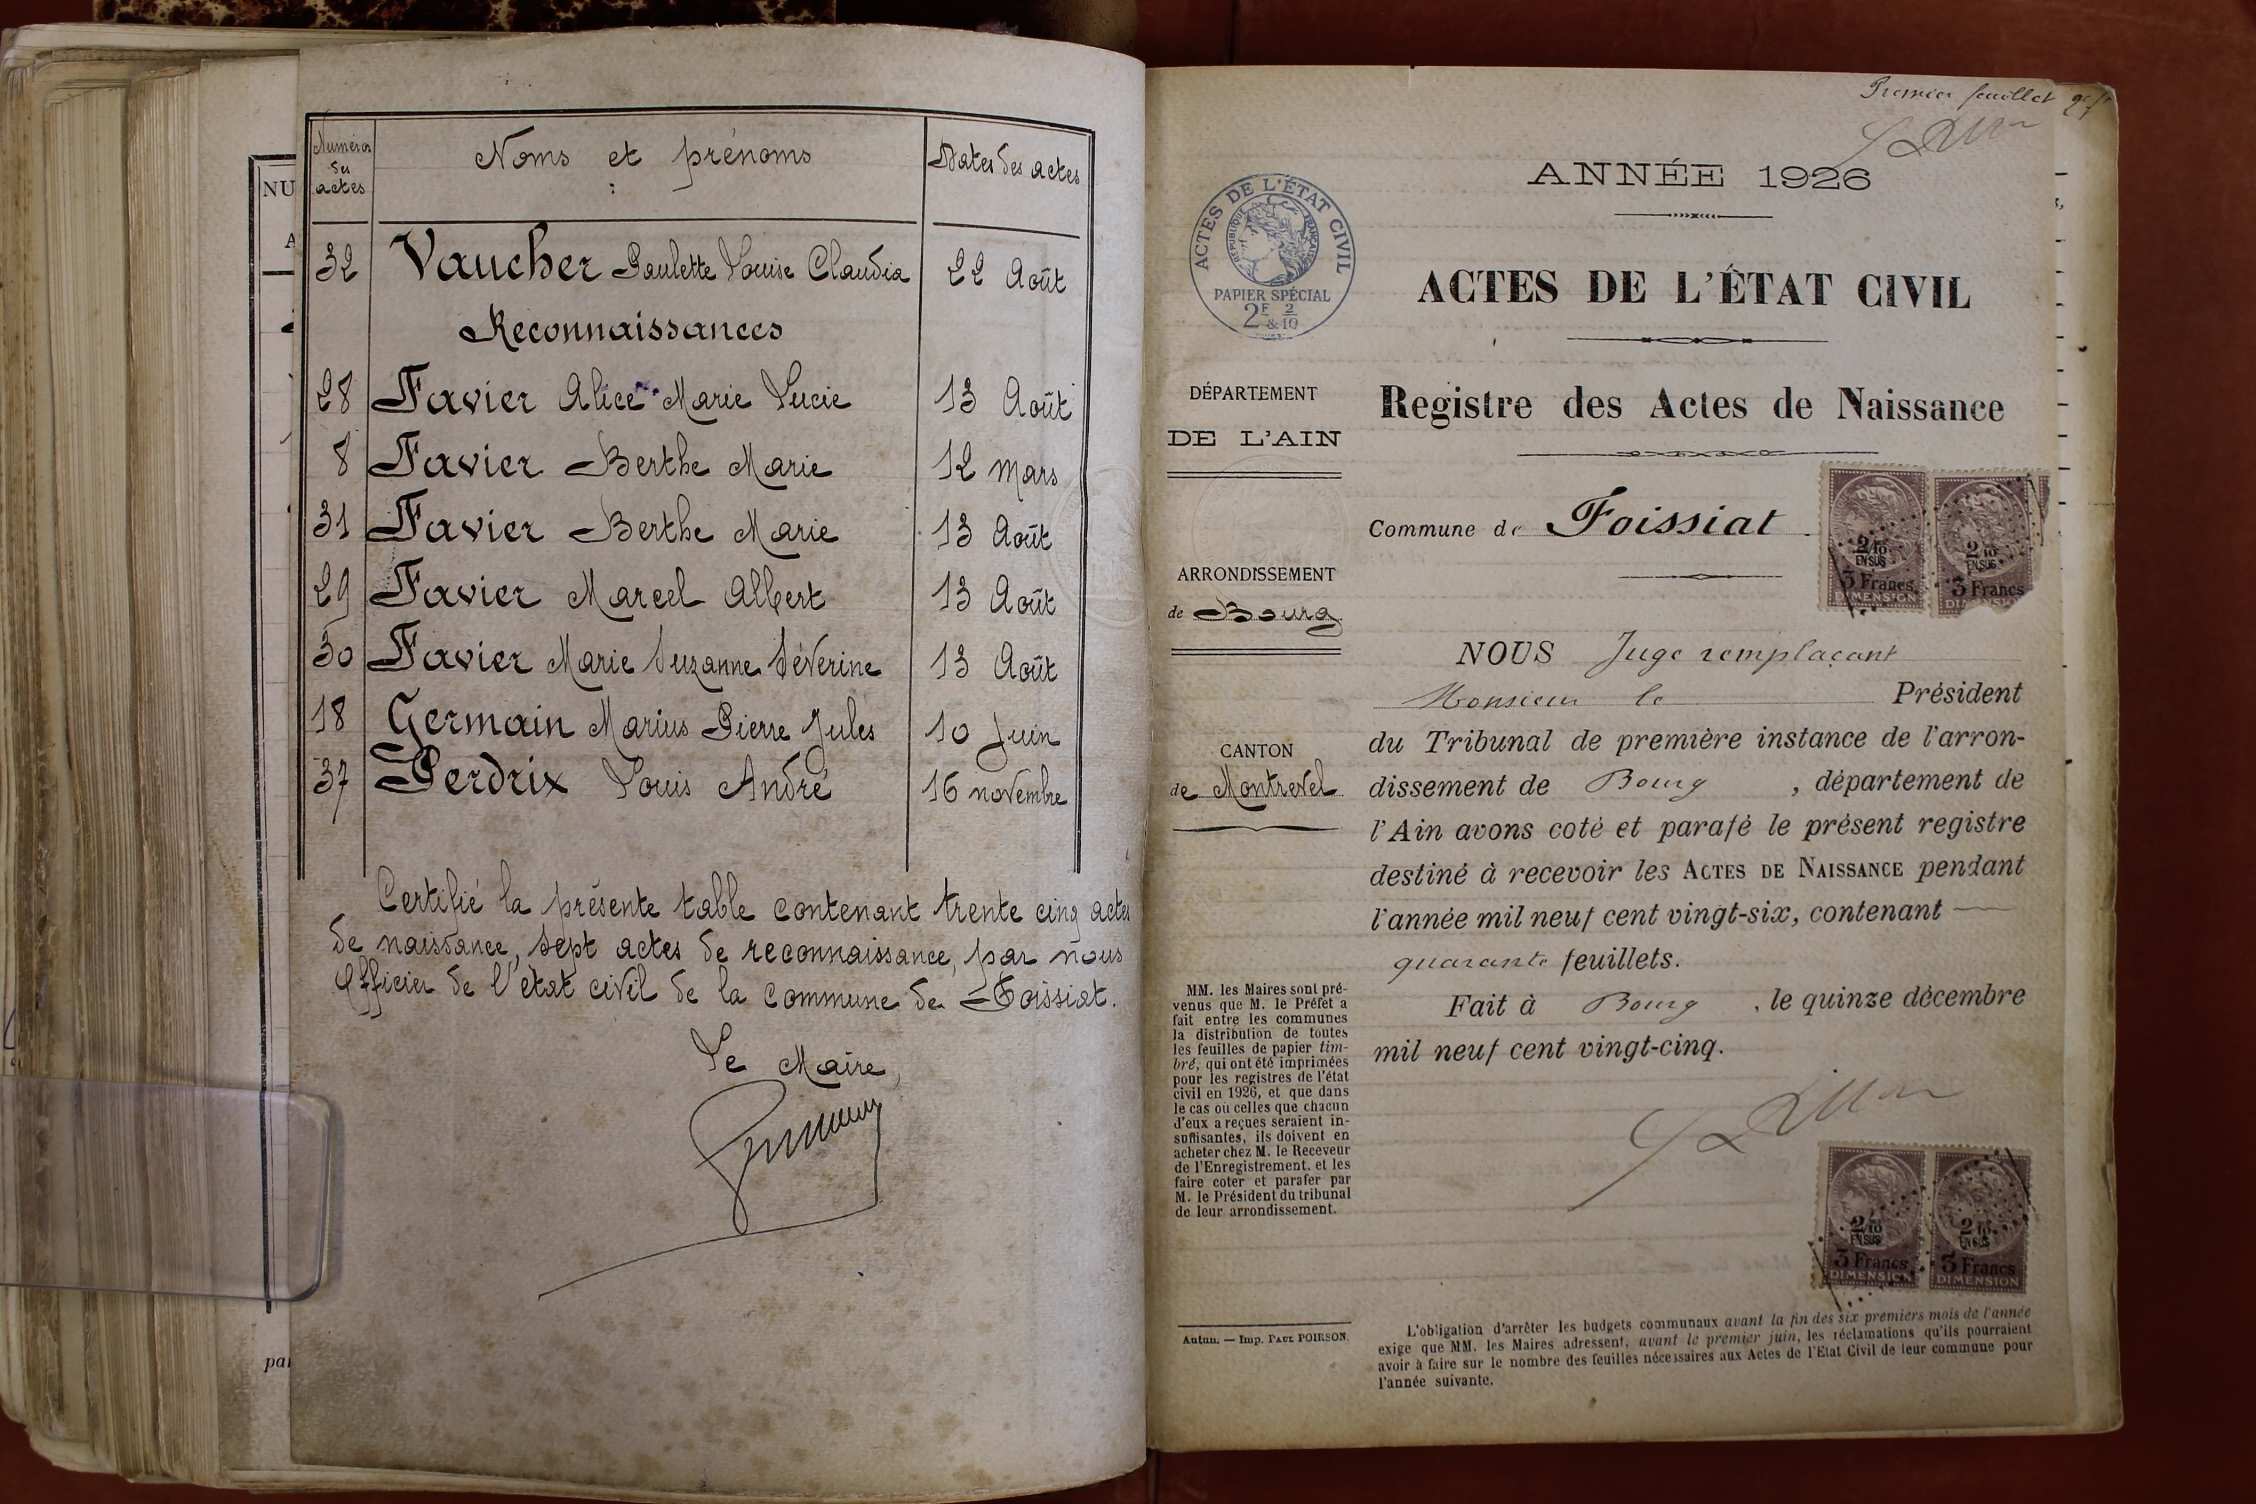 Numéros des actes
Noms et prénoms
Dates des actes
32 Vaucher Paulette Louise Claudia 22 Août
Reconnaissances
28 Favier Alice Marie Lucie 13 Août
8 Favier Berthe Marie 12 mars
31 Favier Berthe Marie 13 Août
29 Favier Marcel Albert 13 Août
30 Favier Marie Suzanne Séverine 13 Août
18 Germain Marius Pierre Jules 10 Juin
37 Perdrix Louis André 16 novembre
Certifié la présente table contenant trente cinq actes
de naissance, sept actes de reconnaissance, par nous
Officier de l'état civil de la commune de Foissiat.
Le Maire,
NU
A
par
Premier feuillet
ANNÉE 1926
ACTES DE L'ÉTAT CIVIL
RÉPUBLIQUE FRANÇAISE
PAPIER SPÉCIAL
2F & 2/10
ACTES DE L'ÉTAT CIVIL
Registre des Actes de Naissance
DÉPARTEMENT
DE L'AIN
Commune de Foissiat
2/10
EN SUS
3 Francs
DIMENSION
2/10
EN SUS
3 Francs
ARRONDISSEMENT
de Bourg
CANTON
de Montrevel
NOUS Juge remplaçant
Monsieur le Président
du Tribunal de première instance de l'arron-
dissement de Bourg, département de
l'Ain avons coté et parafé le présent registre
destiné à recevoir les ACTES DE NAISSANCE pendant
l'année mil neuf cent vingt-six, contenant
quarante feuillets.
Fait à Bourg, le quinze décembre
mil neuf cent vingt-cinq.
MM. les Maires sont pré-
venus que M. le Préfet a
fait entre les communes
la distribution de toutes
les feuilles de papier tim-
bré, qui ont été imprimées
pour les registres de l'état
civil en 1926, et que dans
le cas où celles que chacun
d'eux a reçues seraient in-
suffisantes, ils doivent en
acheter chez M. le Receveur
de l'Enregistrement, et les
faire coter et parafer par
M. le Président du tribunal
de leur arrondissement.
2/10
EN SUS
3 Francs
DIMENSION
2/10
EN SUS
3 Francs
DIMENSION
Autun. — Imp. PAUL POIRSON.
L'obligation d'arrêter les budgets communaux avant la fin des six premiers mois de l'année
exige que MM. les Maires adressent, avant le premier juin, les réclamations qu'ils pourraient
avoir à faire sur le nombre des feuilles nécessaires aux Actes de l'Etat Civil de leur commune pour
l'année suivante.